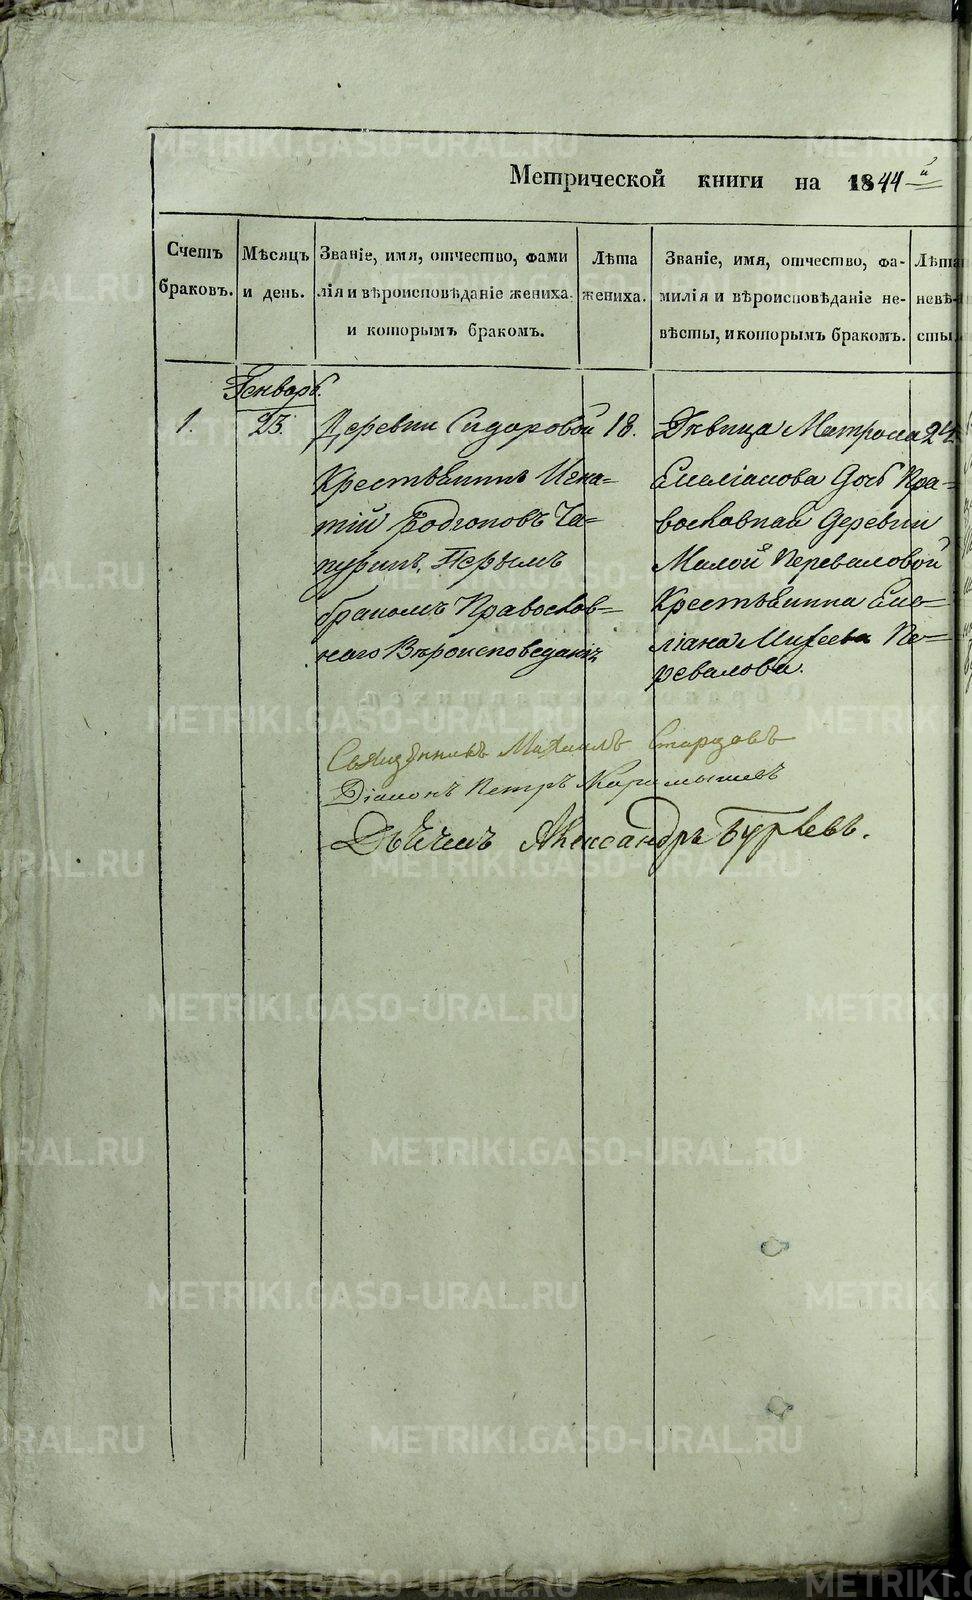 Метрической книги на 1844 й
Счетъ браковъ.
Мѣсяцъ и день.
Званіе, имя, отчество, фами
лія и вѣроисповѣданіе жениха,
и которымъ бракомъ.
Лѣта
жениха.
Званіе, имя, отчество, фа-
милія и вѣроисповѣданіе не-
вѣсты, и которымъ бракомъ.
Лѣта
невѣ-
сты
Генварь.
1.
23.
Деревни Сидоровой
Крестьянинъ Игна-
тій Родіоновъ Ча-
пуринъ, Первымъ
бракомъ Православ-
наго Вѣроисповеданія
18.
Дѣвица Матрона
Емеліанова дочь Пра-
вославная деревни
Малой Переваловой
Крестьянина Еме-
ліана Михеева Пе-
ревалова.
Священникъ Михаилъ Старцовъ
Діаконъ Петръ Карамышевъ
Дьячекъ Александръ
METRIKI.GASO-URAL.RU